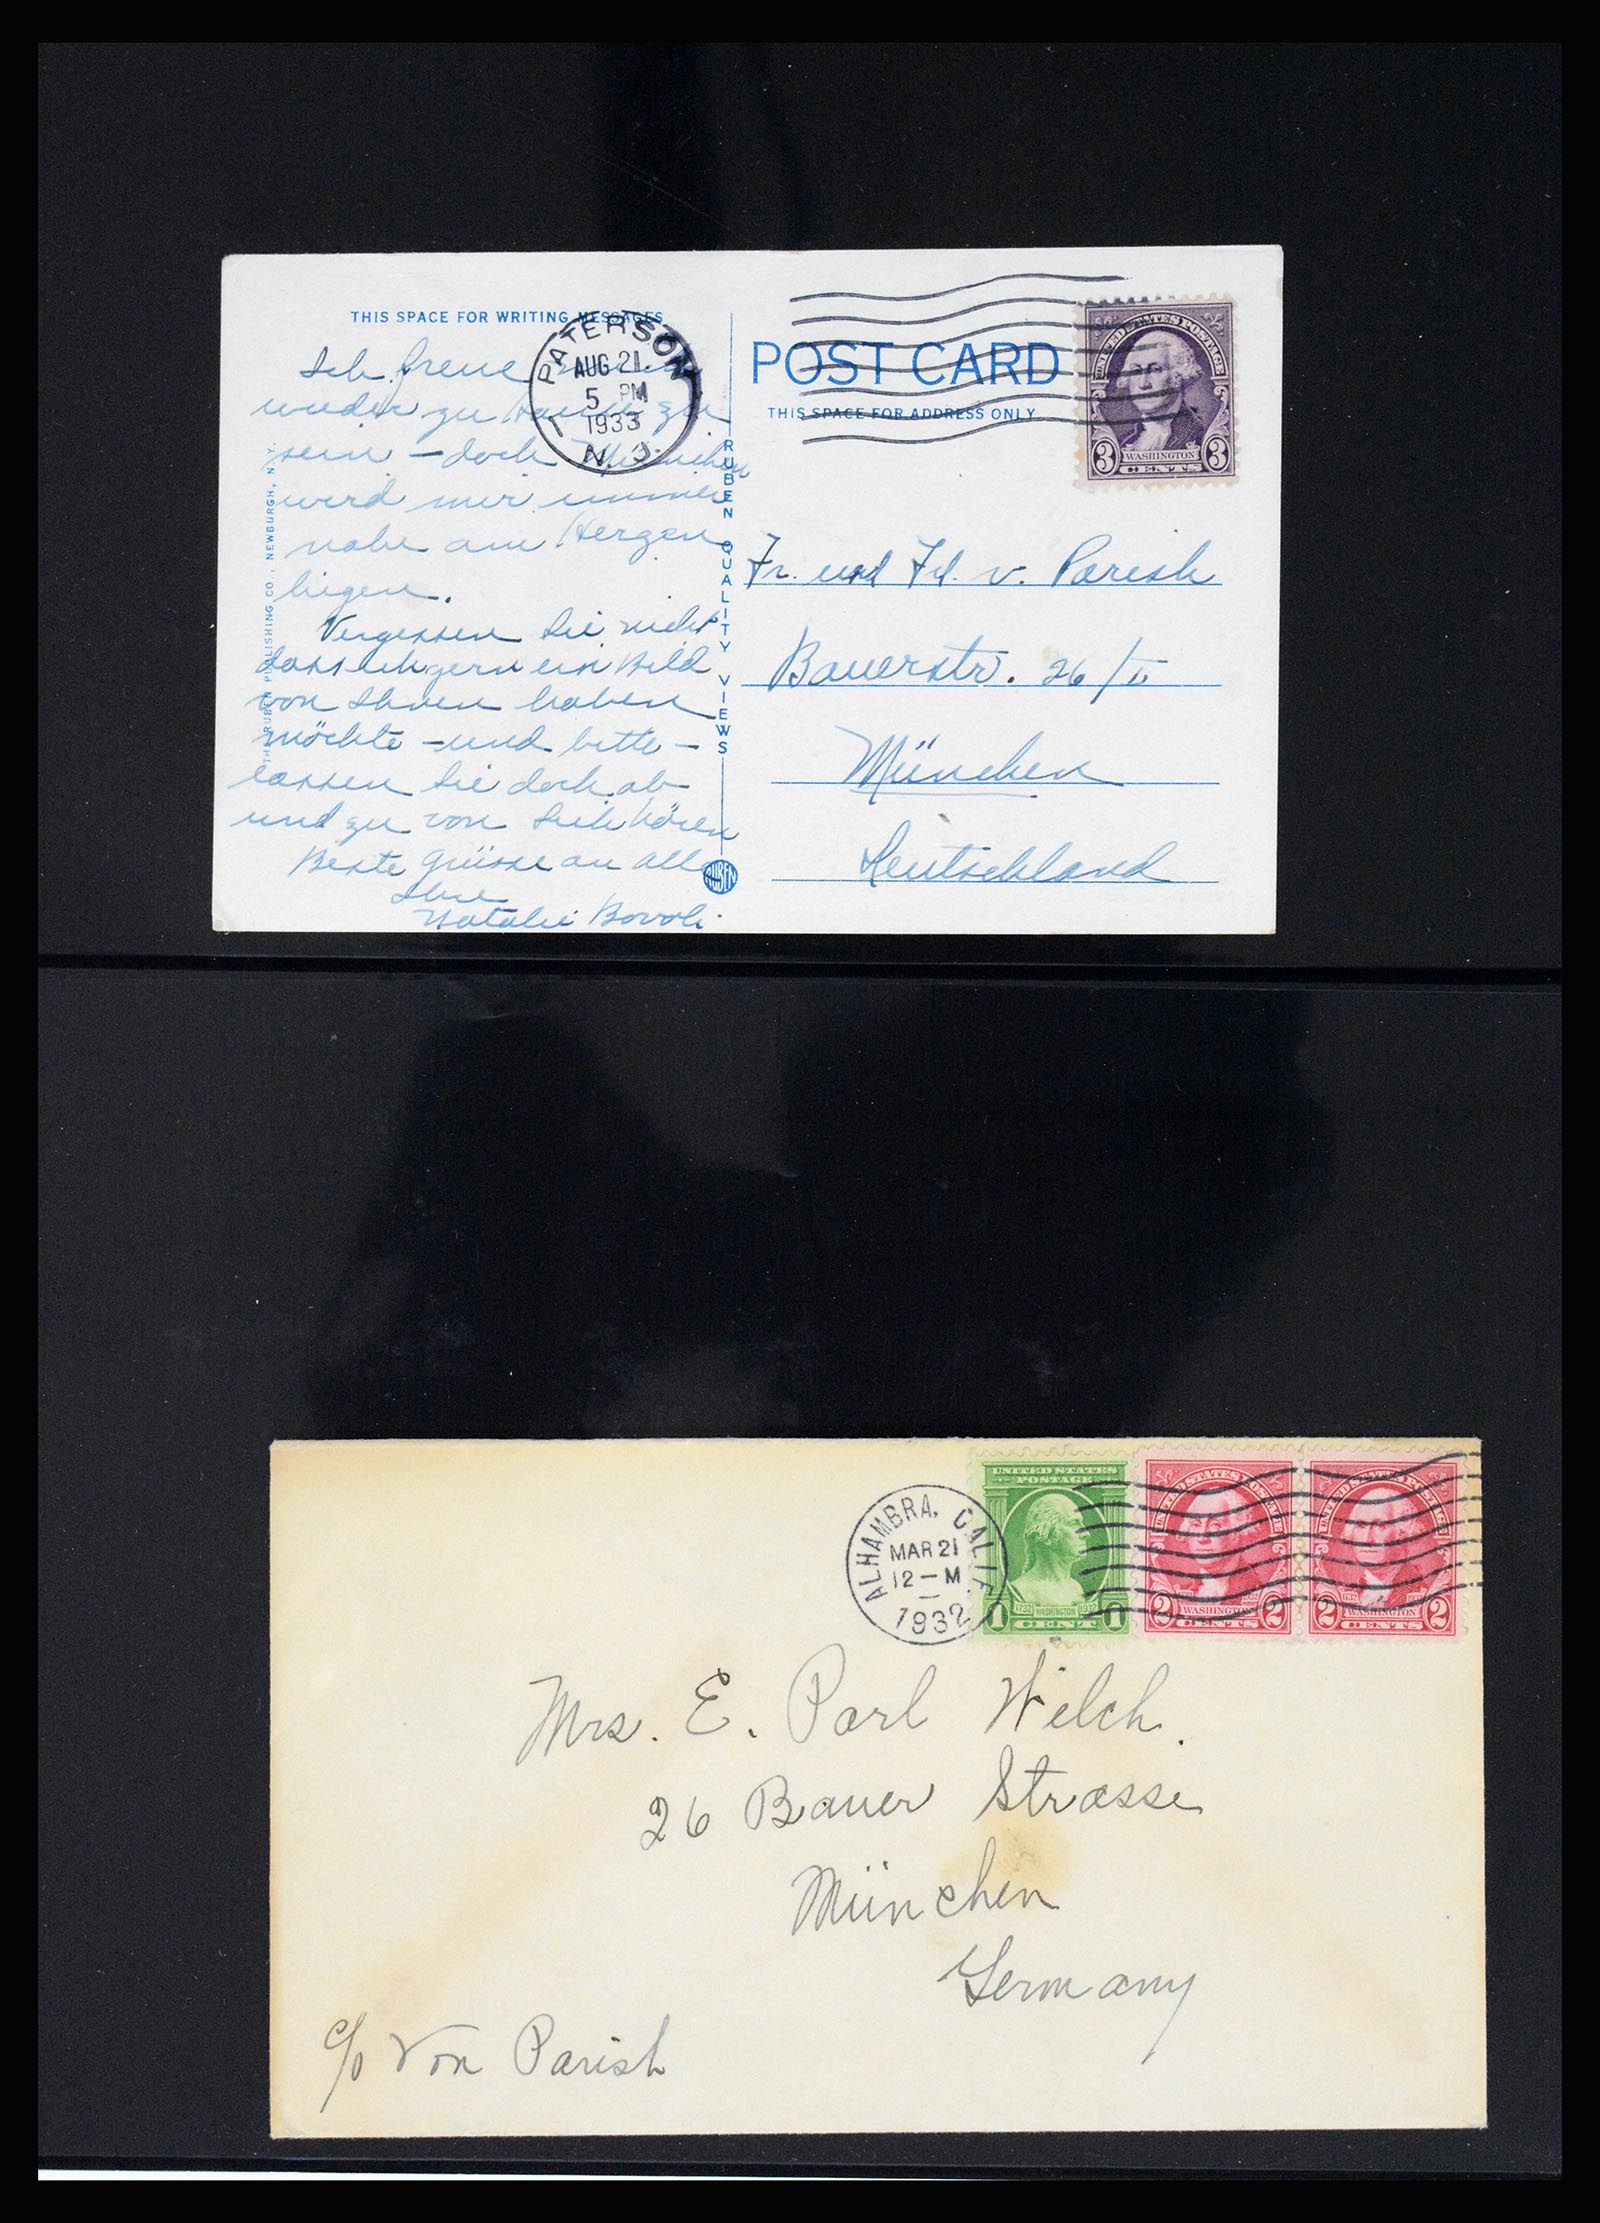 THIS SPACE FOR WRITING MESSAGES
Ich freue
wieder zu Hause zu
sein – doch München
wird mir immer
nahe am Herzen
liegen.
Vergessen Sie nicht
dass ich gern ein Bild
von Ihnen haben
möchte – und bitte –
lassen Sie doch ab
und zu von Sich hören
Beste Grüsse an alle
Ihre
Natalie Bovoli
THE RUBEN PUBLISHING CO., NEWBURGH, N. Y.
RUBEN QUALITY VIEWS
RUBEN
PATERSON
1
AUG 21
5 PM
1933
N. J.
POST CARD
THIS SPACE FOR ADDRESS ONLY
UNITED STATES POSTAGE
3 WASHINGTON 3
CENTS
Fr. und Frl. v. Parish
Bauerstr. 26/II
München
Deutschland
ALHAMBRA, CALIF.
MAR 21
12 – M
1932
UNITED STATES
POSTAGE
1732 WASHINGTON 1932
1 CENT 1
UNITED STATES POSTAGE
2 WASHINGTON 2
CENTS
UNITED STATES POSTAGE
2 WASHINGTON 2
CENTS
Mrs. E. Parl Welch.
26 Bauer Strasse
München
Germany
c/o Von Parish